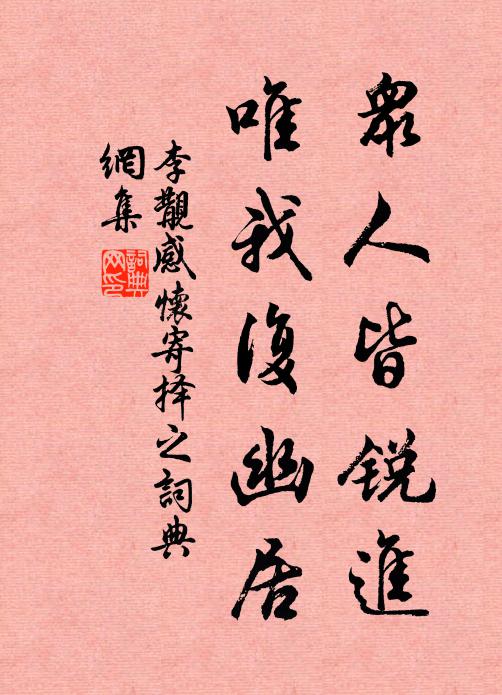 眾人皆銳進
唯我復幽居
李覯感懷寄择之詞典
網集
詞典
网印